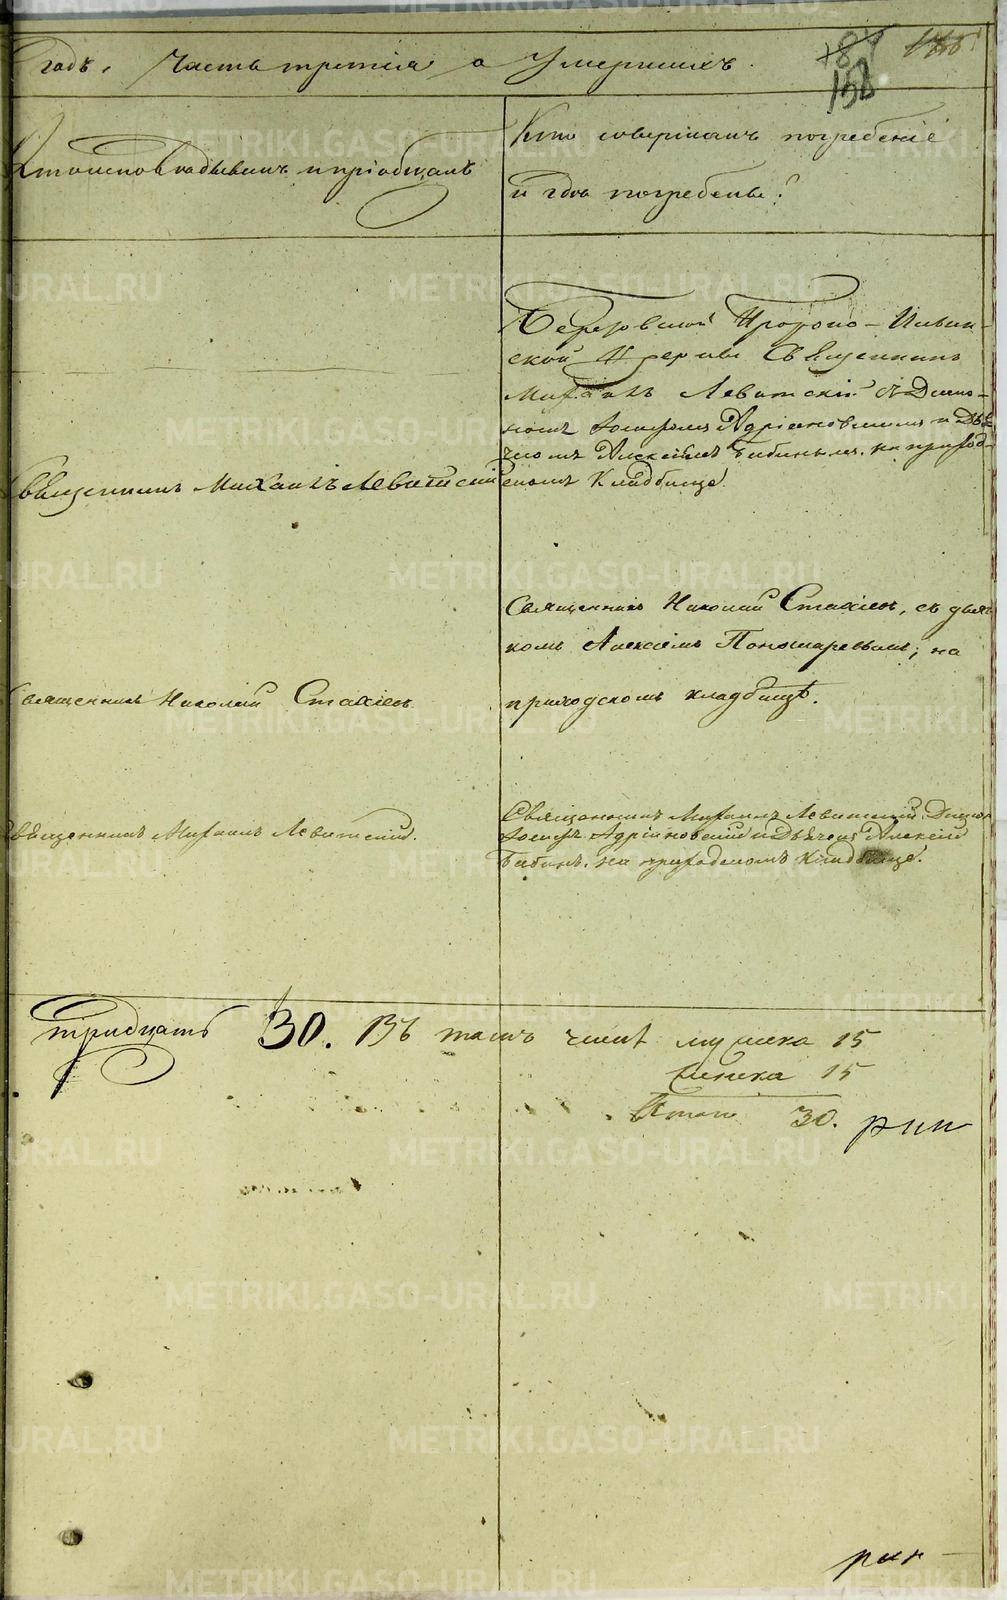 годъ. Часть третія о Умершихъ.
187
158
Кто исповѣдывалъ и пріобщалъ
Кто совершалъ погребеніе
и гдѣ погребены?
Березовской Пророко-Ильин-
ской Церкви Священникъ
Михаилъ Левитскій съ Діако-
номъ Іосифомъ Адріановскимъ и Дья-
чкомъ Алексѣемъ Бабинымъ. на приход-
скомъ Кладбище.
Священникъ Михаилъ Левитскій
Священникъ Николай Стахіевъ, съ дьяч-
комъ Алексіемъ Пономаревымъ; на
приходскомъ кладбищѣ.
Священникъ Николай Стахіевъ
Священникъ Михаилъ Левитскій Діакон
Іосифъ Адріановскій и Дьячекъ Алексій
Бабинъ. на приходскомъ Кладбище.
Священникъ Михаилъ Левитский.
тридцать 30. Въ томъ числѣ мужска 15
женска 15
Итого 30.
METRIKI.GASO-URAL.RU